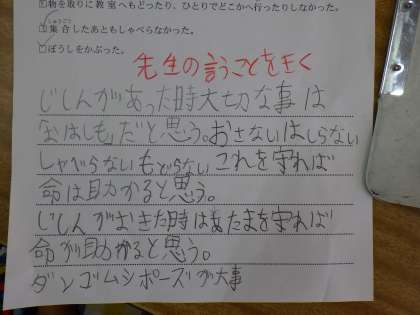 物を取りに教室へもどったり、ひとりでどこかへ行ったりしなかった。
集合したあともしゃべらなかった。
ぼうしをかぶった。
先生の言うことをきく
じしんがあった時大切な事は
「おはしも」だと思う。おさないはしらない
しゃべらないもどらないこれを守れば
命は助かると思う。
じしんがおきた時はあたまを守れば
命が助かると思う。
ダンゴムシポーズが大事